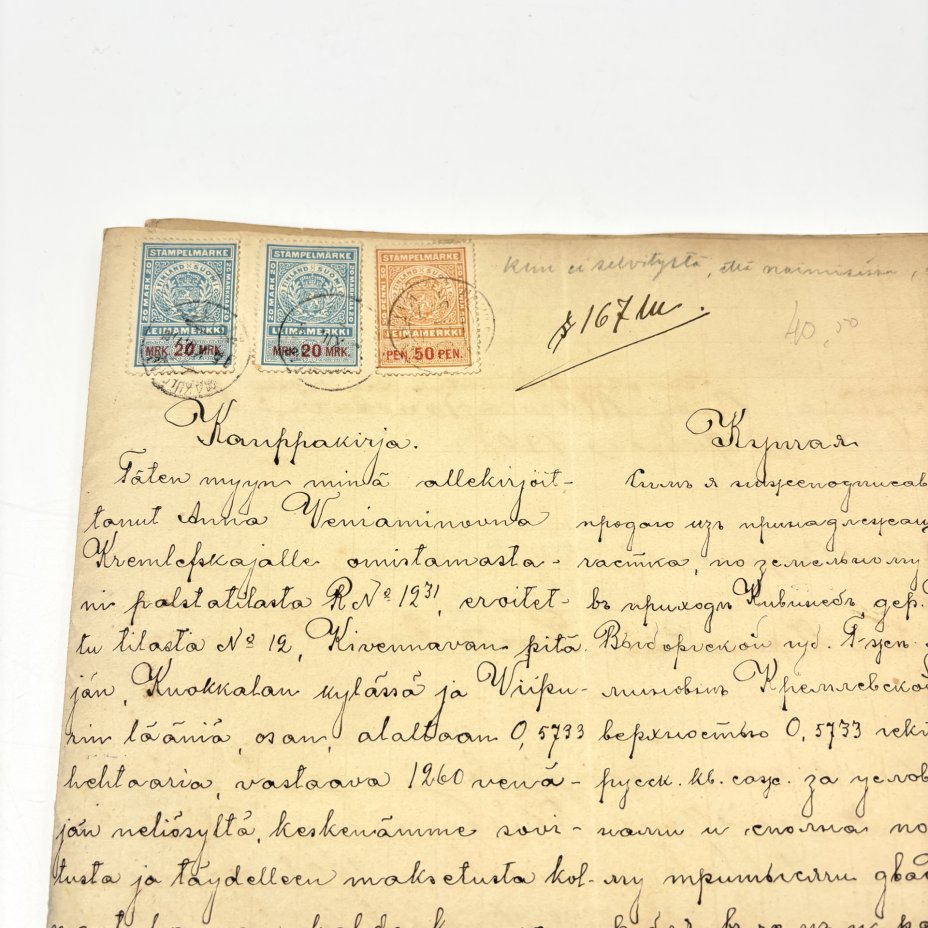 STÄMPELMARKE
FINLAND SUOMI
20 MARK 20
LEIMAMERKKI
MRK. 20 MRK.
STÄMPELMARKE
FINLAND SUOMI
20 MARK 20
LEIMAMERKKI
MRK. 20 MRK.
STÄMPELMARKE
FINLAND SUOMI
LEIMAMERKKI
PEN. 50 PEN.
kun ei selvitystä, että naimisissa,
§ 167
40,00
Kauppakirja.
Täten myyn minä allekirjoit-
tanut Anna Veniaminovna
Kremlefskajalle omistamasta-
ni palstatilasta RNo 12³¹, eroitet-
tu tilasta No 12, Kivennavan pitä
jän, Kuokkalan kylässä ja Viipu-
rin lääniä, osan, alaltaan 0,5733
hehtaaria, vastaava 1260 venä-
jän neliösyltä, keskenämme sovi-
tusta ja täydelleen maksetusta kol-
Купчая
Симъ я нижеподписав
продаю изъ принадлежащ
частка, по земельному
въ приходѣ Кивинебъ, дер.
Выборгской губ.
миновнѣ Кремлевской
верхностью 0,5733 гект
русск. кв. саж. за услов
нами и сполна по
му тритысячи двад